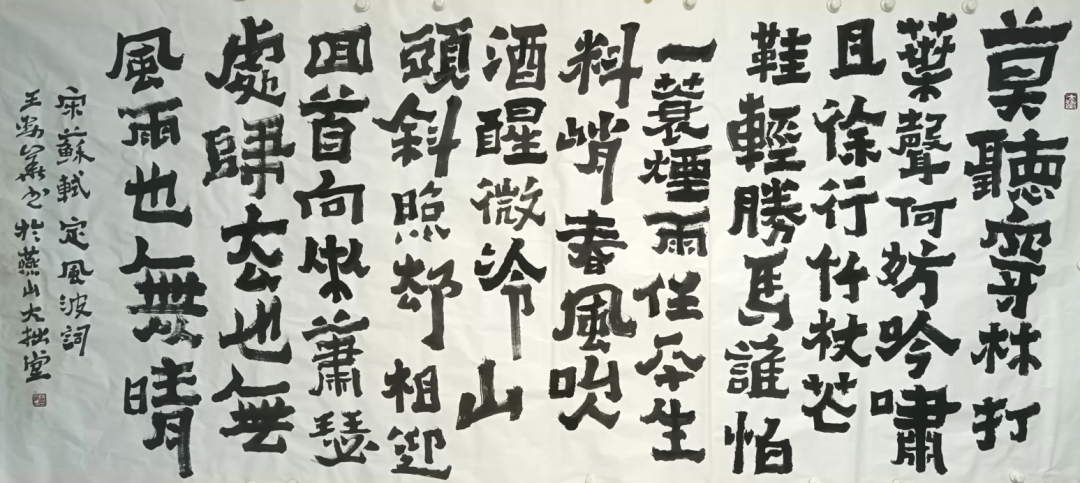 莫聽穿林打
葉聲何妨吟嘯
且徐行竹杖芒
鞋輕勝馬誰怕
一蓑煙雨任平生
料峭春風吹
酒醒微冷山
頭斜照却相迎
回首向來蕭瑟
處歸去也無
風雨也無晴
宋蘇軾定風波詞
王書於燕山大拙堂